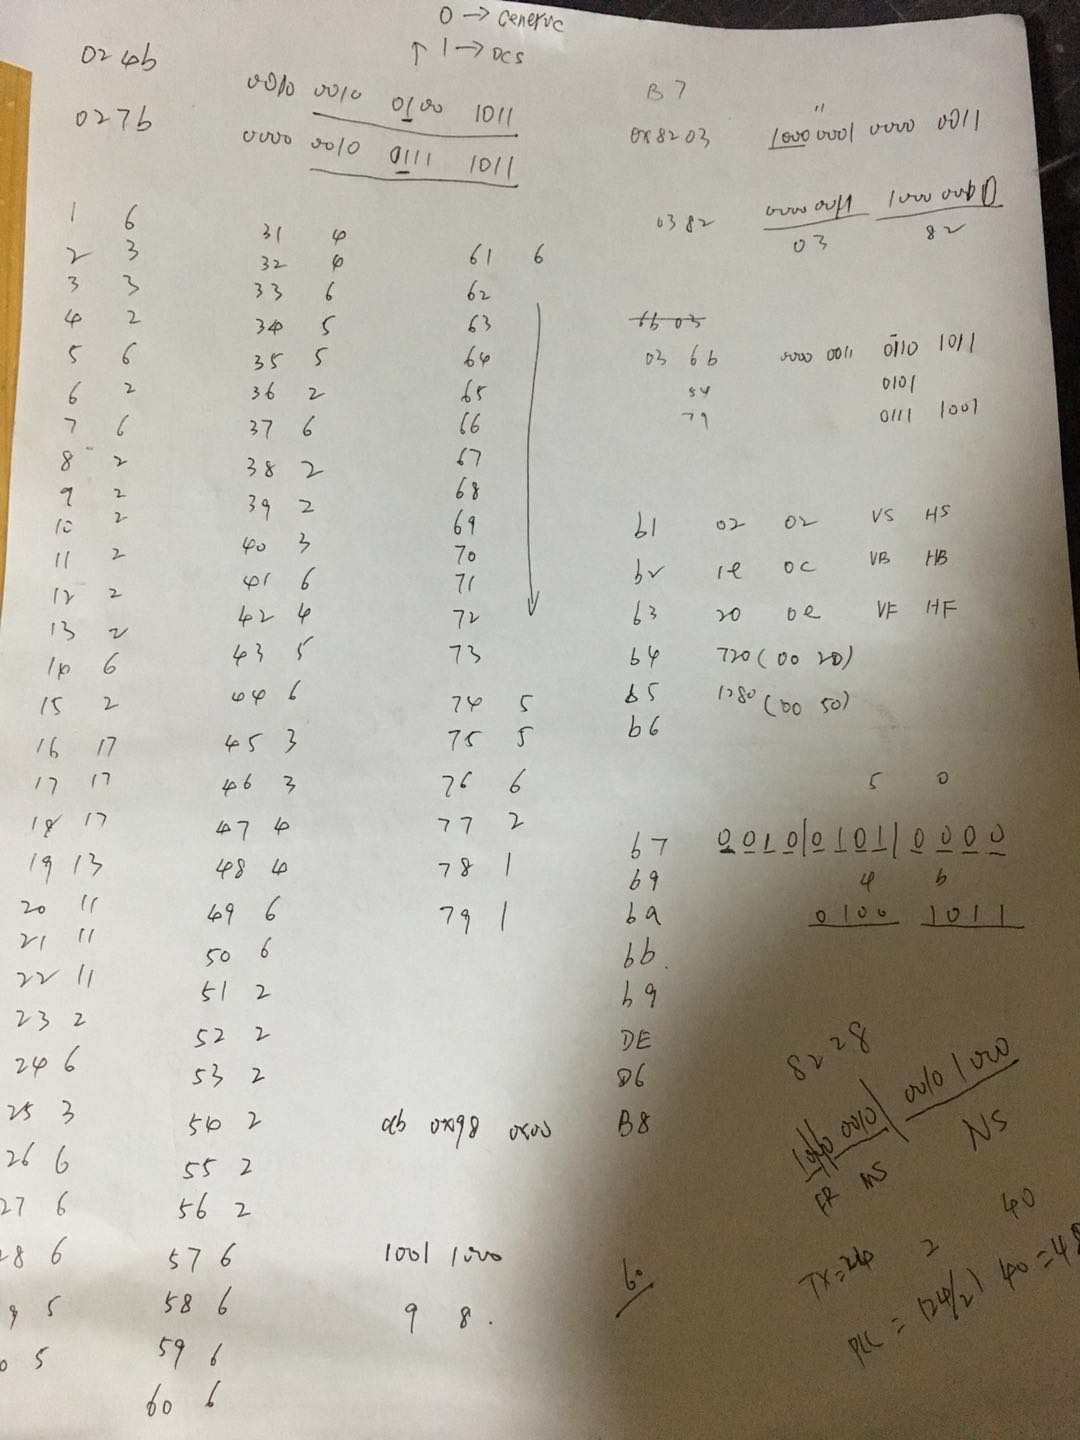 0 → Generic
↑ 1 → DCS
024b 0010 0010 0100 1011
027b 0000 0010 0111 1011
B7
0x8203 1000 0001 0000 0011
0382
03 82
6b 03
03 6b 0000 0011 0110 1011
54 0101
79 0111 1001
1 6
2 3
3 3
4 2
5 6
6 2
7 6
8 2
9 2
10 2
11 2
12 2
13 2
14 6
15 2
16 17
17 17
18 17
19 13
20 11
21 11
22 11
23 2
24 6
25 3
26 6
27 6
28 6
9 5
0 5
31 4
32 4
33 6
34 5
35 5
36 2
37 6
38 2
39 2
40 3
41 6
42 4
43 5
44 6
45 3
46 3
47 4
48 4
49 6
50 6
51 2
52 2
53 2
54 2
55 2
56 2
57 6
58 6
59 6
60 6
61 6
62
63
64
65
66
67
68
69
70
71
72
73
74 5
75 5
76 6
77 2
78 1
79 1
ab 0x98 0x00
1001 1000
9 8.
b1 02 02 VS HS
b2 1e 0c VB HB
b3 20 0e VF HF
b4 720 (00 20)
b5 1280 (00 50)
b6
5 0
b7 0010|0101|0000
b9 4 b
ba 0100 1011
bb.
b9
DE
D6
B8
60
8228
0010 | 0010 1000
FR MS NS
TX=24 2 40
PLL = (24/2) 40 = 48